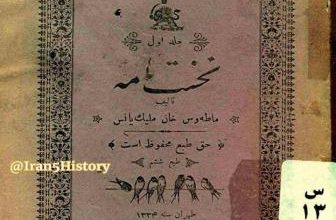 جلد اول
نخست نامه
تألیف
ماطه‌وس خان ملیک‌یانس
حق طبع محفوظ است
طبع ششم
طهران سنه ۱۳۳۴
@Iran5History
س
۱۳